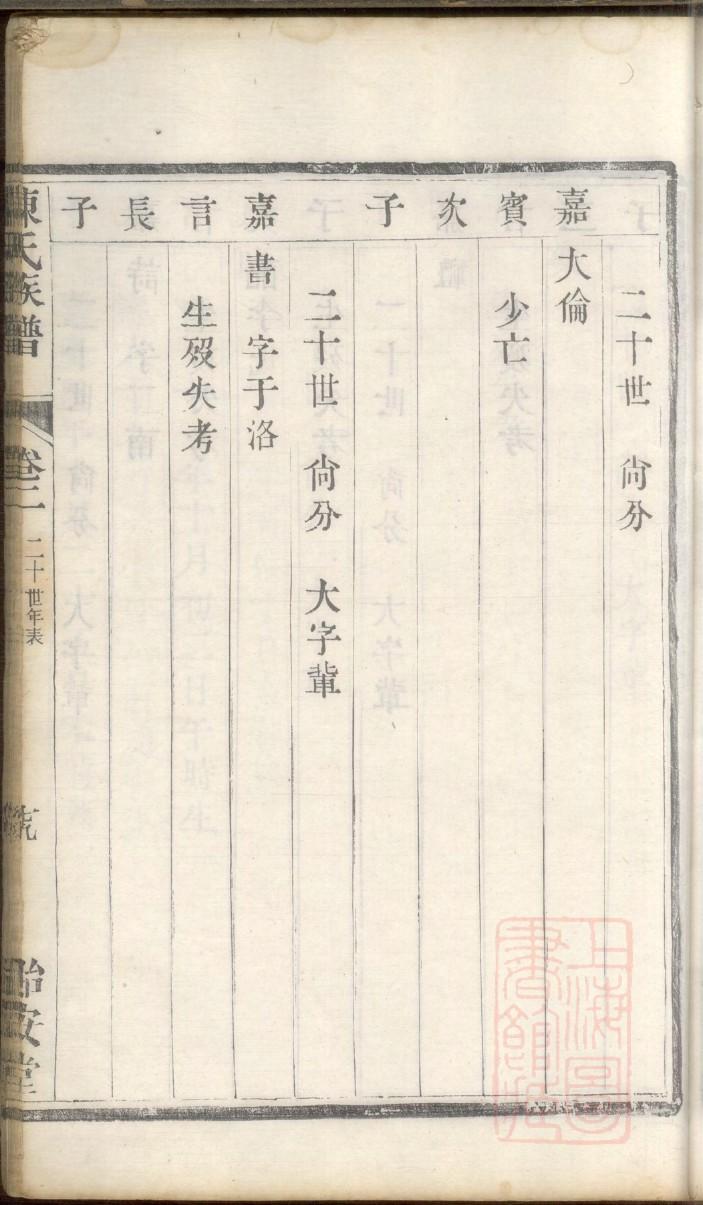 二十世 尙分
嘉 大倫
賓 少亡
次
子
二十世 尙分 大字輩
嘉 書 字于洛
言 生歿失考
長
子
陳氏族譜 卷二 二十世年表
上海圖書館藏